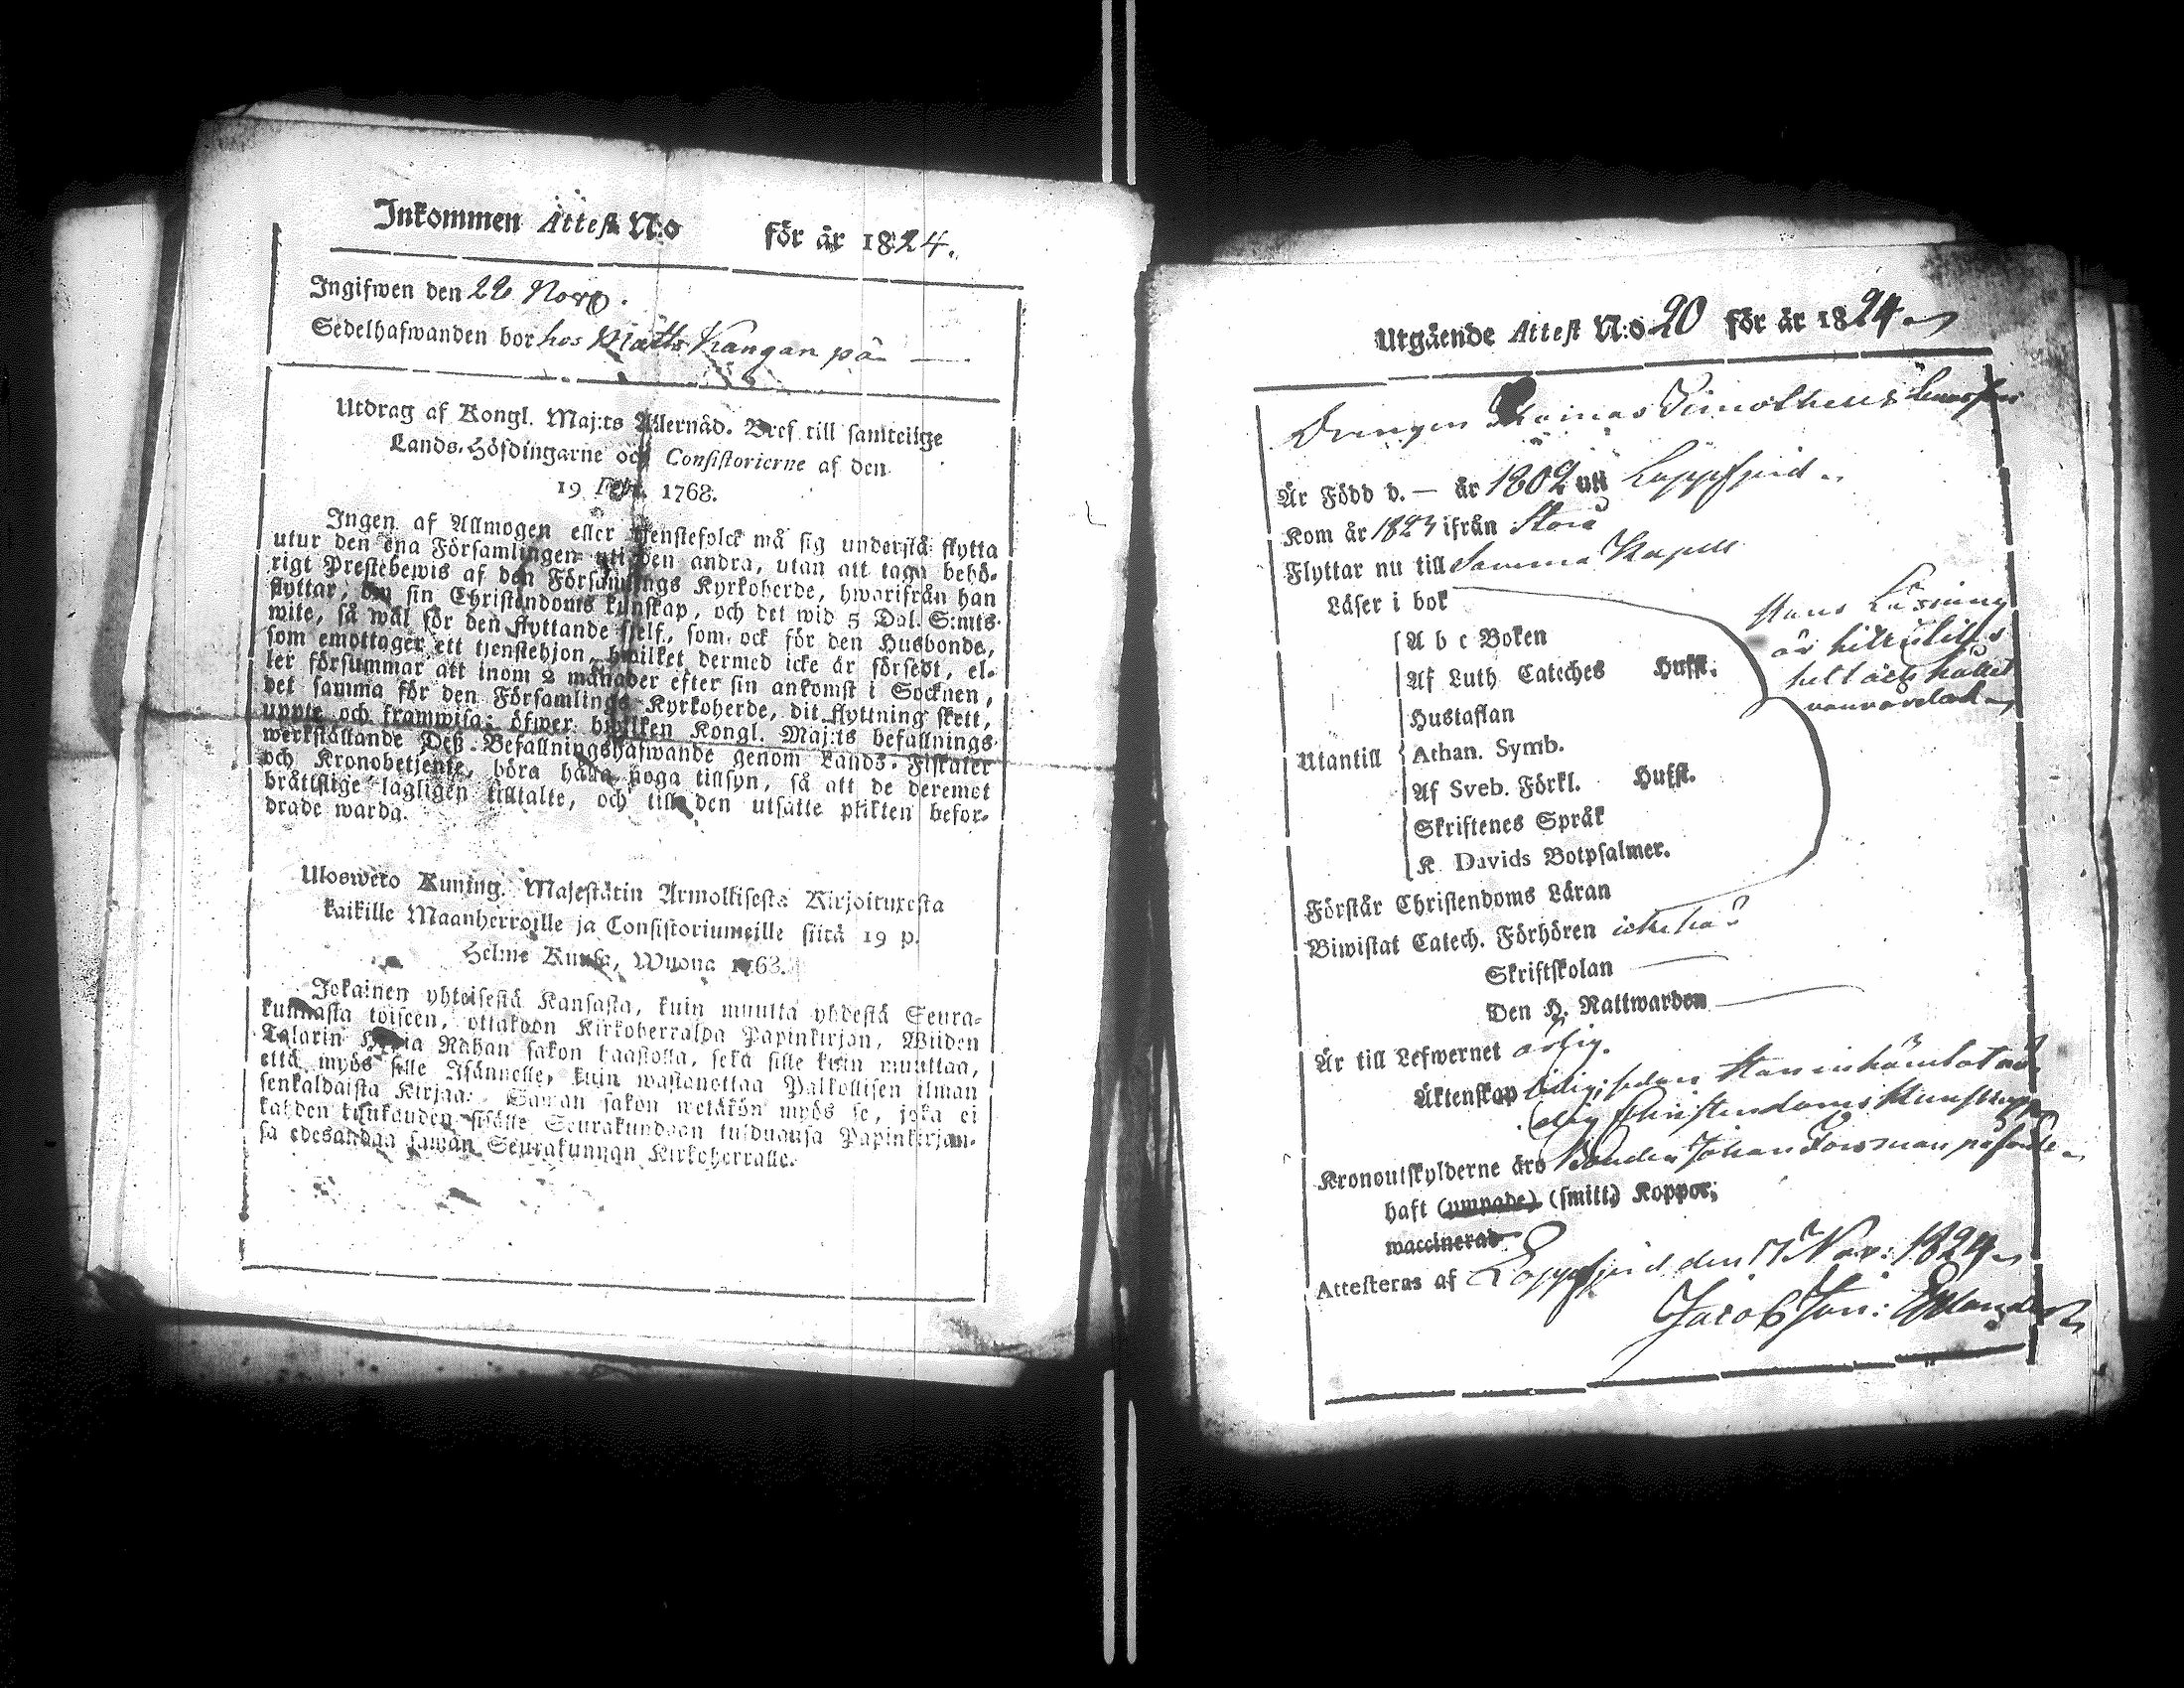 Inkommen Attest N:o för år 1824.
Ingifwen den 22 Novb.
Sedelhafwanden bor hos Matts Kangan på
Utdrag af Kongl. Maj:ts Allernåd. Bref till samtelige
Lands-Höfdingarne och Consistorierne af den
19 Febr. 1768.
Ingen af Allmogen eller tjenstefolck må sig understå flytta
utur den ena Församlingen uti den andra, utan att taga behö-
rigt Prestebewis af den Församlings Kyrkoherde, hwarifrån han
flyttar, om sin Christendoms kunskap, och det wid 5 Dal. S:mts
wite, så wäl för den flyttande sjelf, som ock för den Husbonde,
som emottager ett tjenstehjon, hwilket dermed icke är försedt, el-
ler försummar att inom 2 månader efter sin ankomst i Socknen,
det samma för den Församlings Kyrkoherde, dit flyttning skett,
uppte och framwisa; öfwer hwilken Kongl. Maj:ts befallnings
werkställande Deß Befallningshafwande genom Lands-Fiskaler
och Kronobetjente, böra hålla noga tillsyn, så att de deremot
bråttslige lagligen tilltalte, och till den utsatte plikten befor-
drade warda.
Ulosweto Kuning. Majestätin Armollisesta Kirjoituxesta
kaikille Maanherroille ja Consistoriumeille siitä 19 p.
Helme Kuusa, Wuona 1763.
Jokainen yhteisestä Kansasta, kuin muutta yhdestä Seura-
kunnasta toiseen, ottakoon Kirkoherralda Papinkirjan, Wiiden
Talarin Hopia Rahan sakon haastolla, sekä sille kuin muuttaa,
että myös sille Isännelle, kuin wastanottaa Palkollisen ilman
senkaldaista Kirjaa. Saman sakon wetäkön myös se, joka ei
kahden kuukauden sisälle Seurakundaan tulduansa Papinkirjan-
sa edesandaa saman Seurakunnan Kirkoherralle.
Utgående Attest N:o 20 för år 1824
Drengen Thomas Timotheus
Är Född d. — år 1802 uti Lappfjerd
Kom år 1823 ifrån Storå
Flyttar nu till Samma Kapell
Läser i bok
Hans Läsning
är
A b c Boken
Af Luth Cateches Hufst.
Hustaflan
Utantill Athan. Symb.
Af Sveb. Förkl. Hufst.
Skriftenes Språk
K Davids Botpsalmer.
Förstår Christendoms Läran
Biwistat Catech. Förhören icke här
Skriftskolan
Den H. Nattwarden
Är till Lefwernet ärlig.
Äktenskap ledig, sedan Han inhämtat
Christendoms Kunskap
Kronoutskylderne äro Bonden Johan Forsman på
haft (ympade) (smitt) Koppor,
waccinerad
Attesteras af Lappfjerd den 17 Nov: 1824
Jacob Joh: